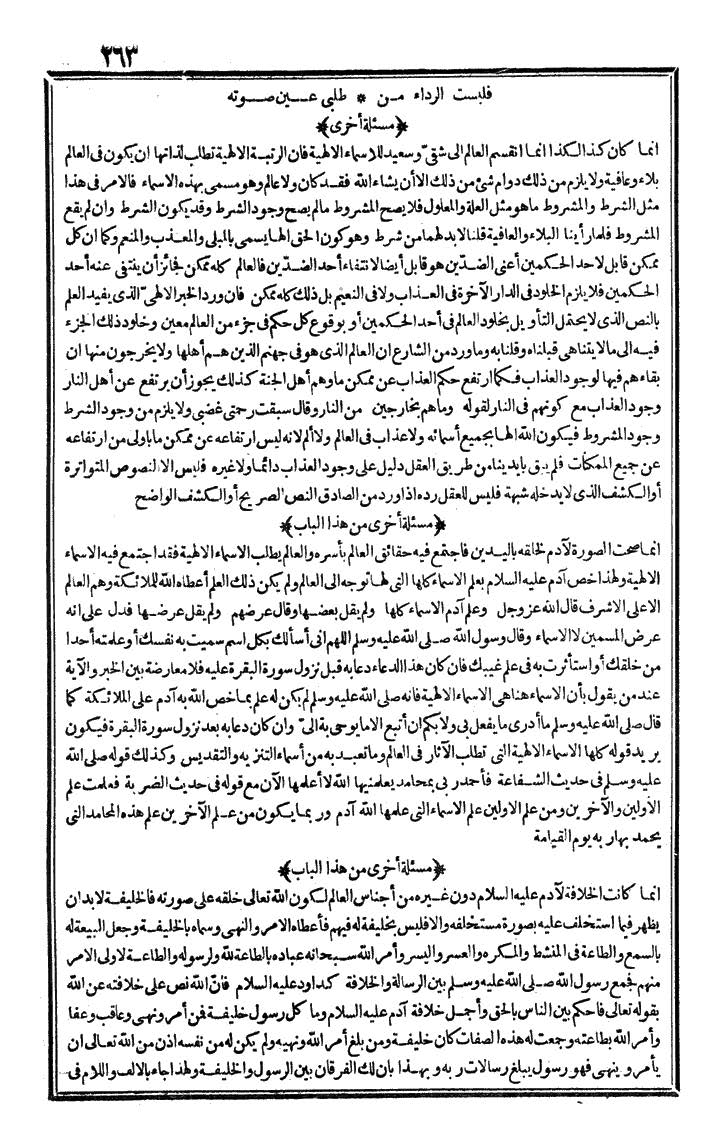 ٢٦٣
فلبست الرداء من * طلبي عين صوته
﴿مسئلة أخرى﴾
انما كان كذا لكذا انما انقسم العالم الى شقيّ وسعيد للاسماء الالهية فان الرتبة الالهية تطلب لذاتها ان يكون فى العالم
بلاء وعافية ولا يلزم من ذلك دوام شئ من ذلك الا أن يشاء الله فقد كان ولا عالم وهو مسمى بهذه الاسماء فالامر فى هذا
مثل الشرط والمشروط ماهو مثل العلة والمعلول فلا يصح المشروط مالم يصح وجود الشرط وقد يكون الشرط وان لم يقع
المشروط فلما رأينا البلاء والعافية قلنا لابد لهما من شرط وهو كون الحق الها يسمى بالمبلى والمعذب والمنعم وكما ان كل
ممكن قابل لاحد الحكمين أعنى الضدّين هو قابل أيضا لانتفاء أحد الضدّين فالعالم كله ممكن فجائز أن ينتفى عنه أحد
الحكمين فلا يلزم الخلود فى الدار الآخرة فى العذاب ولا فى النعيم بل ذلك كله ممكن فان ورد الخبر الالهىّ الذى يفيد العلم
بالنص الذى لا يحتمل التأويل بخلود العالم فى أحد الحكمين أو بوقوع كل حكم فى جزء من العالم معين وخلود ذلك الجزء
فيه الى مالا يتناهى قبلناه وقلنا به وماورد من الشارع ان العالم الذى هو فى جهنم الذين هم أهلها ولا يخرجون منها ان
بقاءهم فيها لوجود العذاب فكما ارتفع حكم العذاب عن ممكن ما وهم أهل الجنة كذلك يجوز أن يرتفع عن أهل النار
وجود العذاب مع كونهم فى النار لقوله وماهم بخارجين من النار وقال سبقت رحمتى غضبى ولا يلزم من وجود الشرط
وجود المشروط فيكون الله الها بجميع أسمائه ولا عذاب فى العالم ولا ألم لانه ليس ارتفاعه عن ممكن ما باولى من ارتفاعه
عن جميع الممكنات فلم يبق بايدينا من طريق العقل دليل على وجود العذاب دائما ولا غيره فليس الا النصوص المتواترة
أو الكشف الذى لا يدخله شبهة فليس للعقل رده اذا ورد من الصادق النص الصريح أو الكشف الواضح
﴿مسئلة أخرى من هذا الباب﴾
انما صحت الصورة لآدم لخلقه باليدين فاجتمع فيه حقائق العالم بأسره والعالم يطلب الاسماء الالهية فقد اجتمع فيه الاسماء
الالهية ولهذا خص آدم عليه السلام بعلم الاسماء كلها التى لها توجه الى العالم ولم يكن ذلك العلم أعطاه الله للملائكة وهم العالم
الاعلى الاشرف قال الله عز وجل وعلم آدم الاسماء كلها ولم يقل بعضها وقال عرضهم ولم يقل عرضها فدل على انه
عرض المسمين لا الاسماء وقال رسول الله صلى الله عليه وسلم اللهم انى أسألك بكل اسم سميت به نفسك أو علمته أحدا
من خلقك أو استأثرت به فى علم غيبك فان كان هذا الدعاء دعا به قبل نزول سورة البقرة عليه فلا معارضة بين الخبر والآية
عند من يقول بأن الاسماء هنا هى الاسماء الالهية فانه صلى الله عليه وسلم لم يكن له علم بما خص الله به آدم على الملائكة كما
قال صلى الله عليه وسلم ما أدرى ما يفعل بى ولا بكم ان أتبع الا ما يوحى به الىّ وان كان دعا به بعد نزول سورة البقرة فيكون
يريد قوله كلها الاسماء الالهية التى تطلب الآثار فى العالم وما تعبد به من أسماء التنزيه والتقديس وكذلك قوله صلى الله
عليه وسلم فى حديث الشفاعة فأحمد ربى بمحامد يعلمنيها الله لا أعلمها الآن مع قوله فى حديث الضربة فعلمت علم
الأولين والآخرين ومن علم الاولين علم الاسماء التى علمها الله آدم وربما يكون من علم الآخرين علم هذه المحامد التى
يحمد بها ربه يوم القيامة
﴿مسئلة أخرى من هذا الباب﴾
انما كانت الخلافة لآدم عليه السلام دون غيره من أجناس العالم لكون الله تعالى خلقه على صورته فالخليفة لابد ان
يظهر فيما استخلف عليه بصورة مستخلفه والا فليس بخليفة له فيهم فأعطاه الامر والنهى وسماه بالخليفة وجعل البيعة له
بالسمع والطاعة فى المنشط والمكره والعسر واليسر وأمر الله سبحانه عباده بالطاعة لله ولرسوله والطاعة لاولى الامر
منهم فجمع رسول الله صلى الله عليه وسلم بين الرسالة والخلافة كداود عليه السلام فانّ الله نص على خلافته عن الله
بقوله تعالى فاحكم بين الناس بالحق وأجمل خلافة آدم عليه السلام وما كل رسول خليفة فمن أمر ونهى وعاقب وعفا
وأمر الله بطاعته وجمعت له هذه الصفات كان خليفة ومن بلغ أمر الله ونهيه ولم يكن له من نفسه اذن من الله تعالى ان
يأمر وينهى فهو رسول يبلغ رسالات ربه وبهذا بان لك الفرقان بين الرسول والخليفة ولهذا جاء بالالف واللام فى